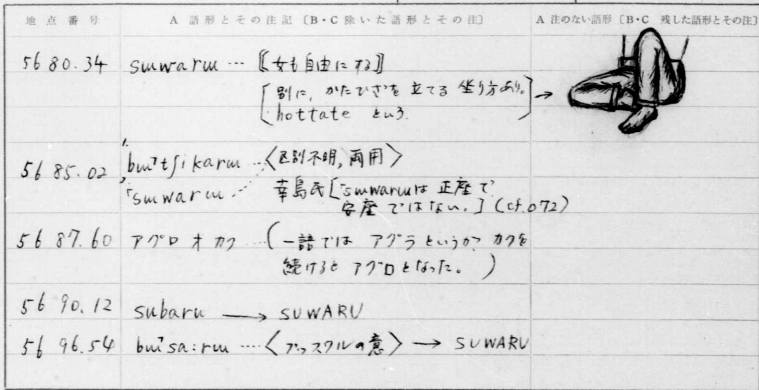 地点番号 A 語形とその注記〔B・C 除いた語形とその注〕 A 注のない語形〔B・C 残した語形とその注〕
56 80.34 sɯwarɯ … 〚女も自由にする〛
[別に,かたひざを立てる坐り方あり。
hottate という.] →
56 85.02 bɯ˥tʃikarɯ … 〈区別不明,両用〉
「sɯwarɯ … 幸島氏[「sɯwarɯは正座で
安座ではない。](cf.072)
56 87.60 アグロオカク …(一語ではアグラというが カクを
続けるとアグロとなった。)
56 90.12 subaru → SUWARU
56 96.54 bɯ˥sa:rɯ …〈ブッスワルの意〉→ SUWARU